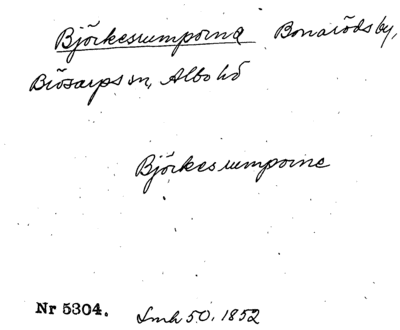 Björkesrumporna Bonarödsby,
Brösarps sn, Albo hd
Björkesrumporne
Nr 5304. Lmh 50. 1852